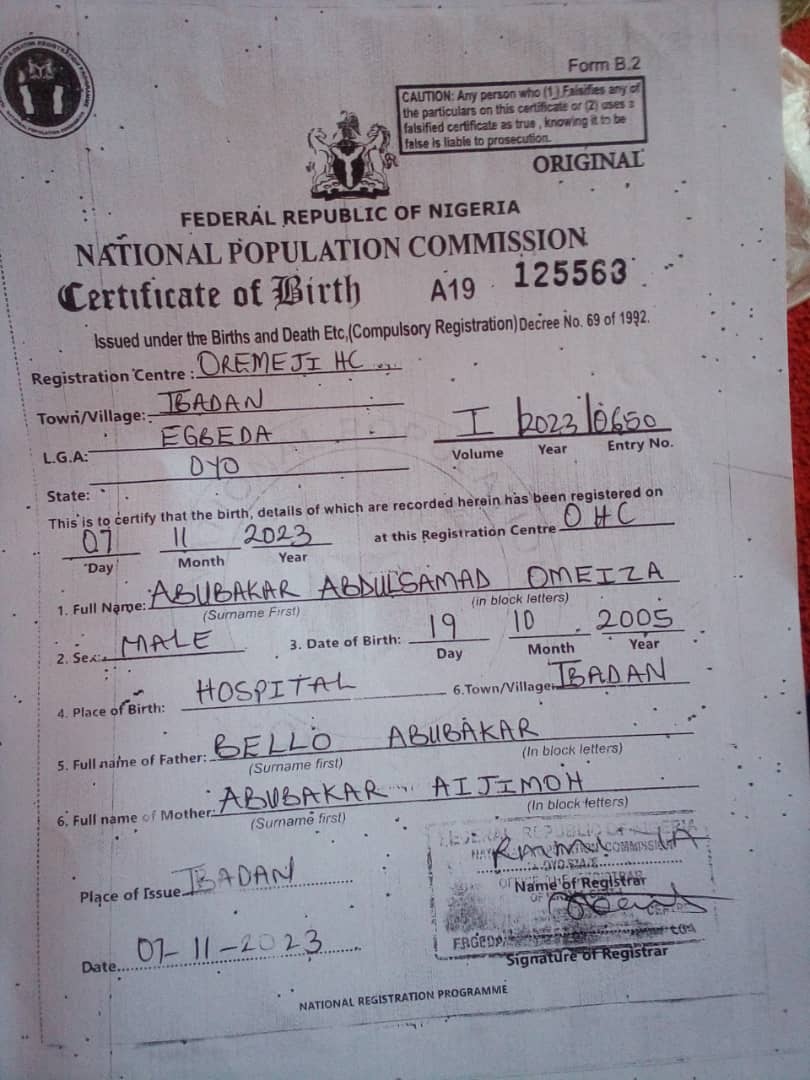 Form B.2
CAUTION: Any person who (1) Falsifies any of
the particulars on this certificate or (2) uses a
falsified certificate as true, knowing it to be
false is liable to prosecution.
ORIGINAL
FEDERAL REPUBLIC OF NIGERIA
NATIONAL POPULATION COMMISSION
Certificate of Birth A19 125563
Issued under the Births and Death Etc,(Compulsory Registration) Decree No. 69 of 1992.
Registration Centre : OREMEJI HC
Town/Village: IBADAN
L.G.A: EGBEDA
I 2023 0650
Volume Year Entry No.
State: OYO
This is to certify that the birth, details of which are recorded herein has been registered on
07 11 2023 at this Registration Centre OHC
Day Month Year
1. Full Name: ABUBAKAR ABDULSAMAD OMEIZA
(Surname First) (in block letters)
2. Sex: MALE 3. Date of Birth: 19 10 2005
Day Month Year
4. Place of Birth: HOSPITAL 6.Town/Village IBADAN
5. Full name of Father: BELLO ABUBAKAR
(Surname first) (In block letters)
6. Full name of Mother: ABUBAKAR AIJIMOH
(Surname first) (In block letters)
FEDERAL REPUBLIC OF NIGERIA
COMMISSION
OYO STATE
Place of Issue IBADAN
Name of Registrar
EGBEDA
Date 07-11-2023
Signature of Registrar
NATIONAL REGISTRATION PROGRAMME